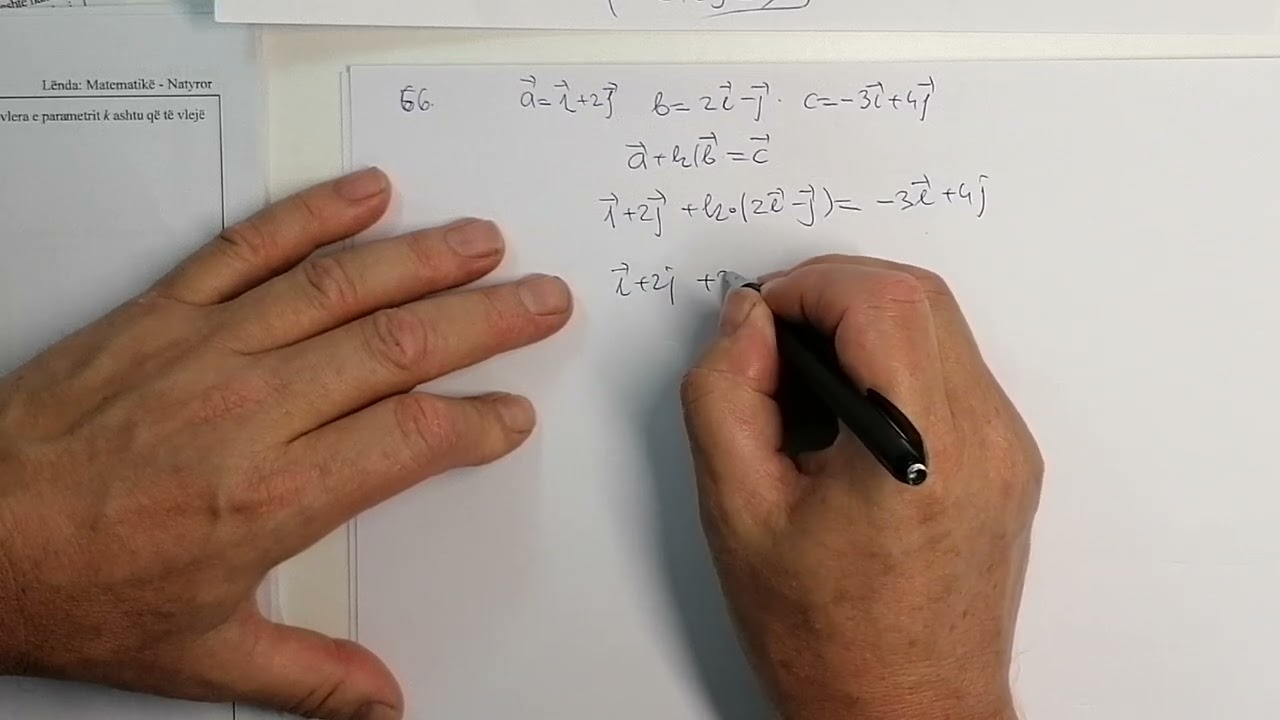 Lënda: Matematikë - Natyror
vlera e parametrit k ashtu që të vlejë
66. a⃗ = i⃗ + 2j⃗ b = 2i⃗ - j⃗ . c = -3i⃗ + 4j⃗
a⃗ + k b⃗ = c⃗
i⃗ + 2j⃗ + k·(2i⃗ - j⃗) = -3i⃗ + 4j
i⃗ + 2j +